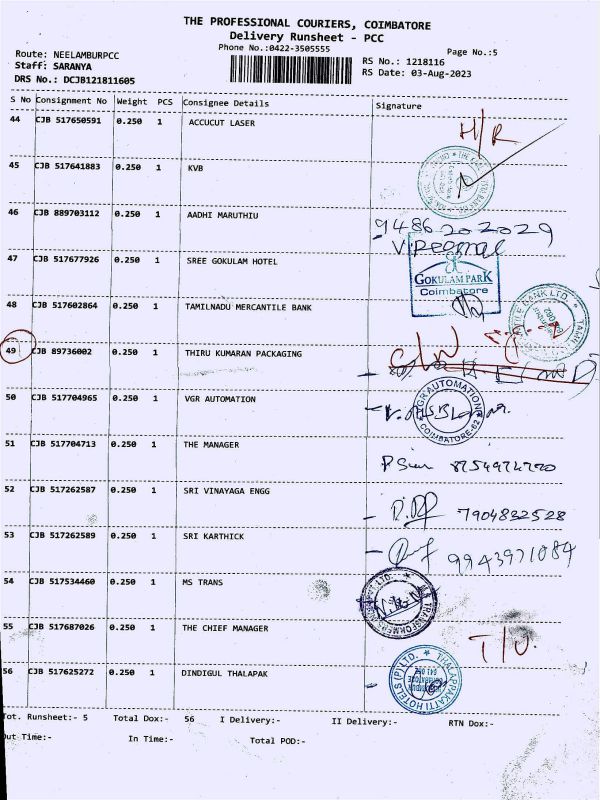 THE PROFESSIONAL COURIERS, COIMBATORE
Delivery Runsheet - PCC
Phone No.:0422-3505555
Page No.:5
Route: NEELAMBURPCC
Staff: SARANYA
DRS No.: DCJB121811605
RS No.: 1218116
RS Date: 03-Aug-2023
S No Consignment No Weight PCS Consignee Details Signature
44 CJB 517650591 0.250 1 ACCUCUT LASER
H/R
45 CJB 517641883 0.250 1 KVB
46 CJB 889703112 0.250 1 AADHI MARUTHIU
9486202029
47 CJB 517677926 0.250 1 SREE GOKULAM HOTEL
GOKULAM PARK
Coimbatore
48 CJB 517602864 0.250 1 TAMILNADU MERCANTILE BANK
49 CJB 89736002 0.250 1 THIRU KUMARAN PACKAGING
50 CJB 517704965 0.250 1 VGR AUTOMATION
VGR AUTOMATION
COIMBATORE-62
51 CJB 517704713 0.250 1 THE MANAGER
52 CJB 517262587 0.250 1 SRI VINAYAGA ENGG
7904832528
53 CJB 517262589 0.250 1 SRI KARTHICK
9943971084
54 CJB 517534460 0.250 1 MS TRANS
55 CJB 517687026 0.250 1 THE CHIEF MANAGER
56 CJB 517625272 0.250 1 DINDIGUL THALAPAK
THALAPPAKATTI HOTELS (P) LTD.
Tot. Runsheet:- 5 Total Dox:- 56 I Delivery:- II Delivery:- RTN Dox:-
Out Time:- In Time:- Total POD:-